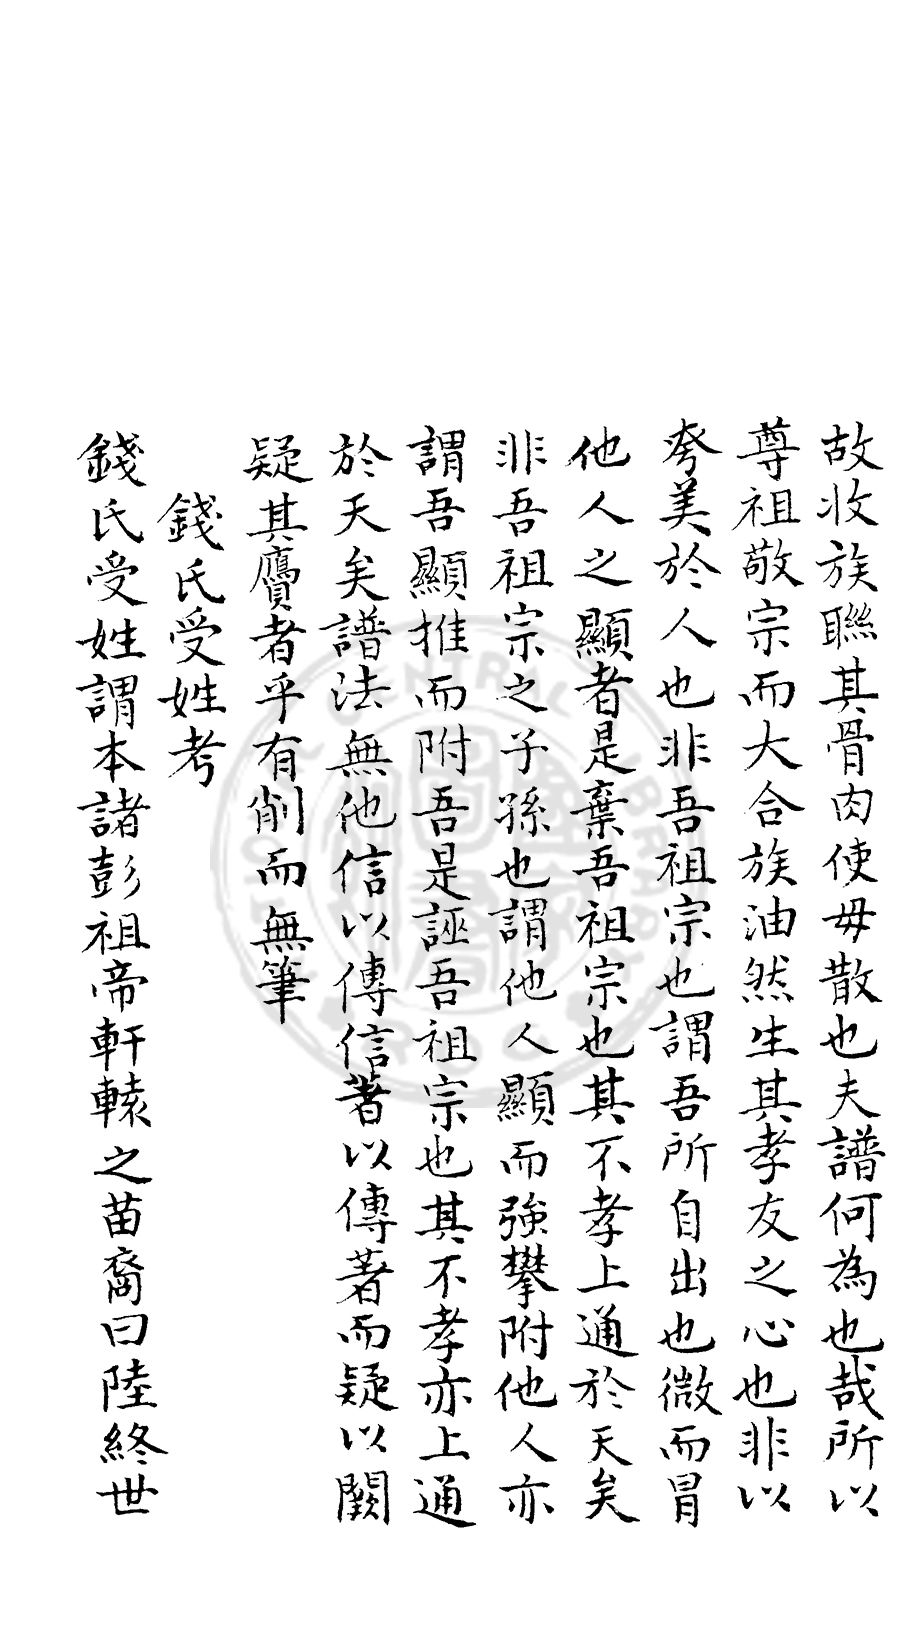 故收族聯其骨肉使毋散也夫譜何為也哉所以
尊祖敬宗而大合族油然生其孝友之心也非以
夸美於人也非吾祖宗也謂吾所自出也微而冒
他人之顯者是棄吾祖宗也其不孝上通於天矣
非吾祖宗之子孫也謂他人顯而強攀附他人亦
謂吾顯推而附吾是誣吾祖宗也其不孝亦上通
於天矣譜法無他信以傳信著以傳著而疑以闕
疑其贗者乎有削而無筆
錢氏受姓考
錢氏受姓謂本諸彭祖帝軒轅之苗裔曰陸終世
CENTRAL LIBRARY